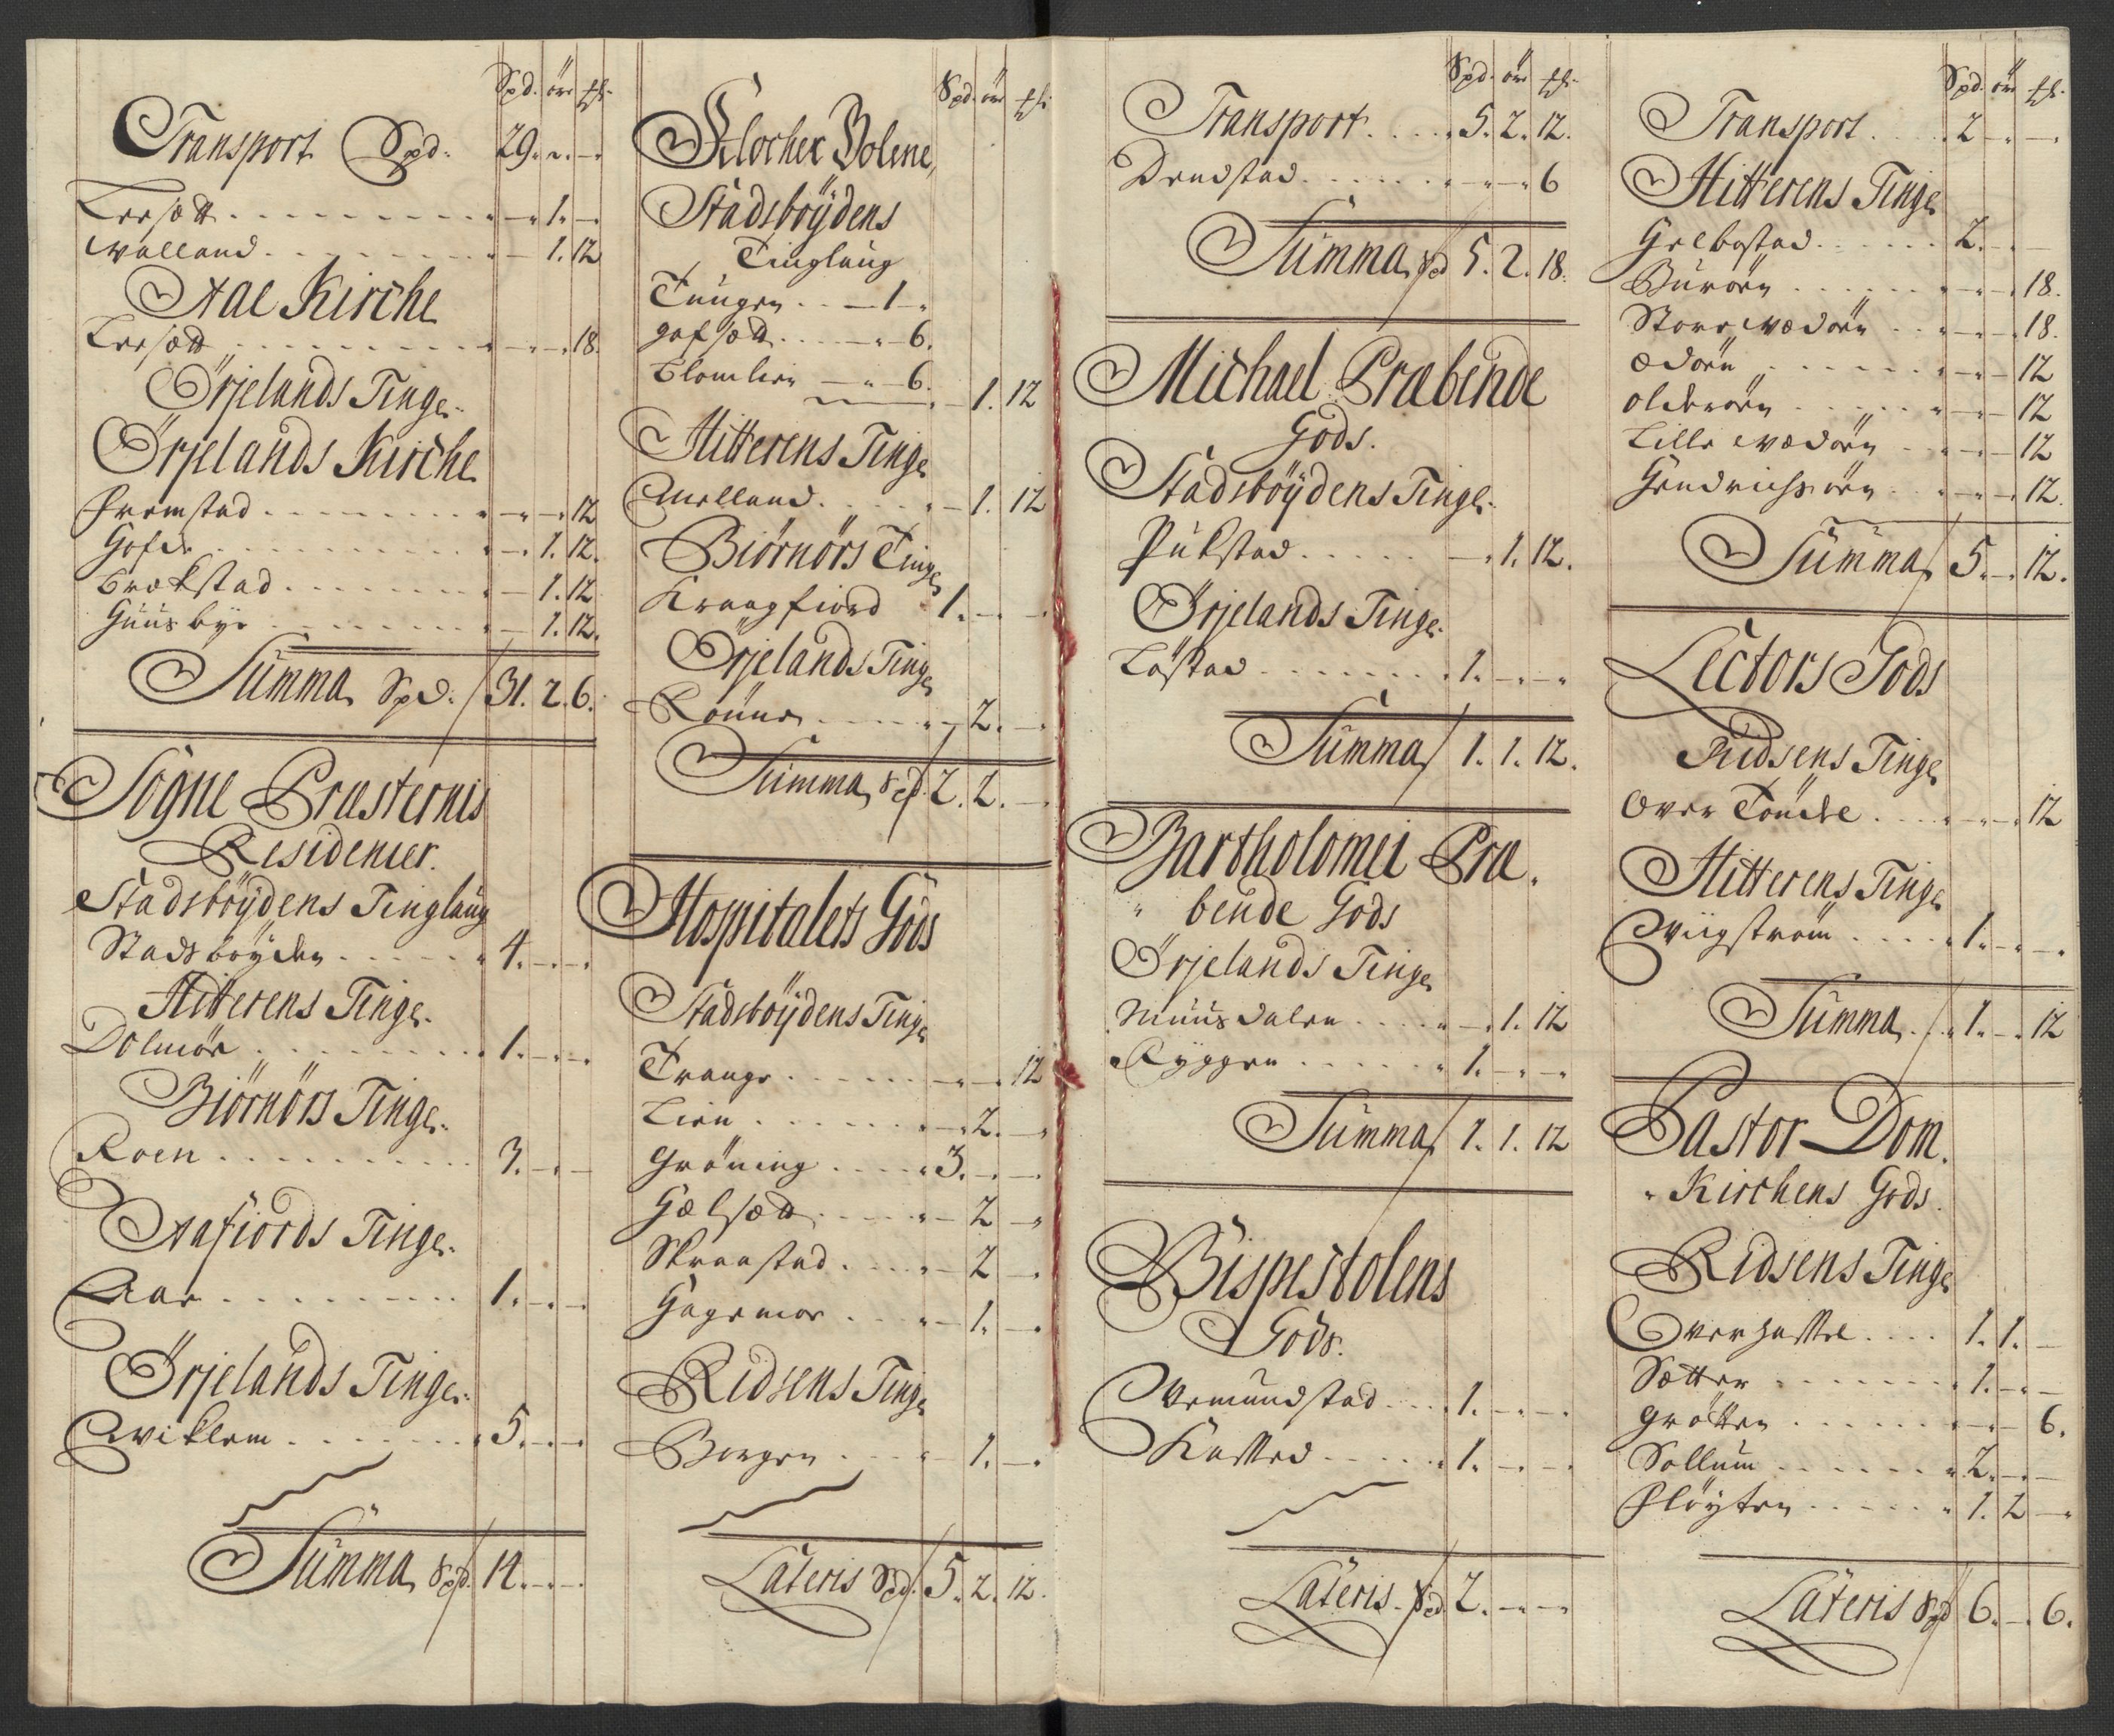 Spd. ör
Transport Spd. 29. „. –
Leesætt . . . – 1. –
Walland . . . – 1. 12
Aae Kirche
Leesætt . . . – – 18.
Örjelands Tinge.
Örjelands Kirche
Fremstad . . . – – 12
Hofde . . . – 1. 12.
Brækstad . . . – 1. 12
Huusbye . . . – 1. 12.
Summa Spd. 31. 2. 6.
Sogne Præsternis
Residenier.
Stadsböydens Tinglaug
Stadsböyden . . . 4. – –
Hitterens Tinge.
Dolmöe . . . 1. – –
Biörnörs Tinge.
Roen . . . 3. – –
Aafiords Tinge.
Aae . . . 1. – –
Örjelands Tinge.
Wiklem . . . 5. – –
Summa Spd. 14. – –
Spd. ör
Klocher Bolene,
Stadsböydens
Tinglaug
Tungen . . – 1 –
Hafsætt . . . – „ 6.
Blomlien – „ 6. – 1. 12
Hitterens Tinge
Melland . . . – 1. 12
Biörnörs Tinge
Kraagfiord 1. – –
Örjelands Tinge
Rönne . . . – 2. –
Summa Spd. 2. 2. –
Hospitalets Gods
Stadsböydens Tinge
Trange . . . – – 12
Lien . . . – 2. –
Gröning . . . 3. – –
Hælsætt . . . – 2 –
Skraastad . . . – 2 –
Hagemoe . . . – 1. –
Ridsens Tinge
Borgen . . . – 1. –
Lateris Spd. 5. 2. 12.
Spd. ör
Transport . . . 5. 2. 12.
Drudstad . . . – – 6
Summa Spd 5. 2. 18.
Michael Præbende
Gods.
Stadsböydens Tinge.
Pukstad . . . – 1. 12.
Örjelands Tinge.
Löstad . . . 1. – –
Summa 1. 1. 12.
Bartholomei Præ.
„ bende Gods
Örjelands Tinge
Muusdalen . . . – 1. 12
Ryggen . . . 1. – –
Summa 1. 1. 12
Bispestolens
Gods.
Wemundstad . . . 1. – –
Kottred . . . 1. – –
Lateris Spd 2. – –
Spd. ör
Transport . . . 2 – –
Hitterens Tinge
Helbostad . . . 2. – –
Buröen . . . – – 18.
Store Wædöen . . – – 18.
Ædöen . . . – – 12
Olderöen . . . – – 12
Lille Wædöen . . – – 12
Hendrichsöen . . – – 12.
Summa 5. – 12.
Lectors Gods
Ridsens Tinge
Over Tönche . . . – – 12
Hitterens Tinge
Wiigström . . . 1. – –
Summa . . 1. – 12
Pastor Dom.
„ Kirchens Gods.
Ridsens Tinge
Overhassel . . . 1. 1. –
Sætter . . . 1. – –
Grötten . . . – – 6.
Sollum . . . 2. – –
Flöyten . . . 1. 2 –
Lateris Spd 6. – 6.